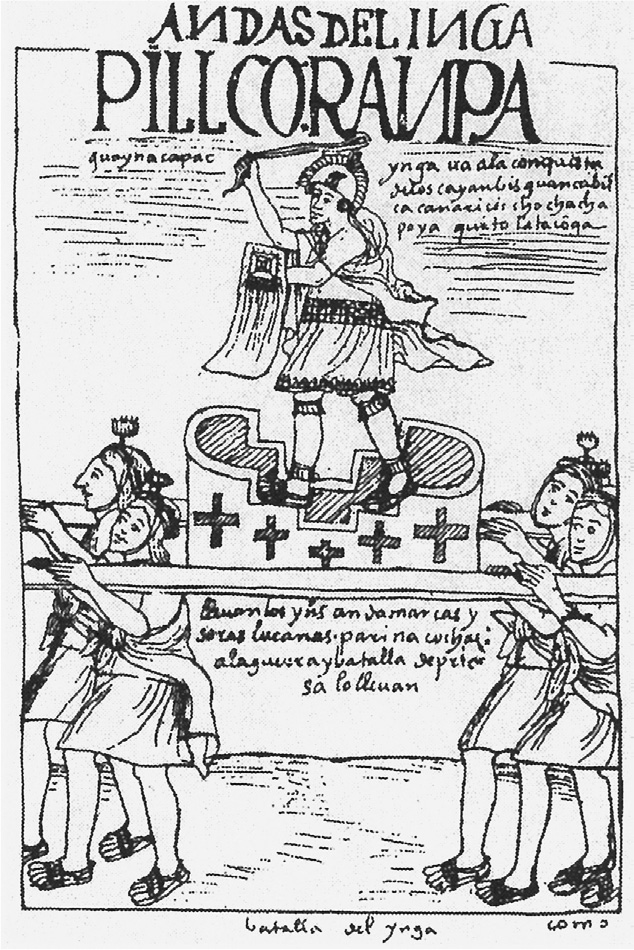 ANDAS DEL INGA
PILLCORANPA
guaynacapac
ynga ua a la conquista
de los cayanbis guancabil
ca canari cicho chacha
poya quito lataconga
lleuan los ynos andamarcas y
soras lucanas parinacochas
a la guerra y batalla de prie
sa lo lleuan
batalla del ynga
como